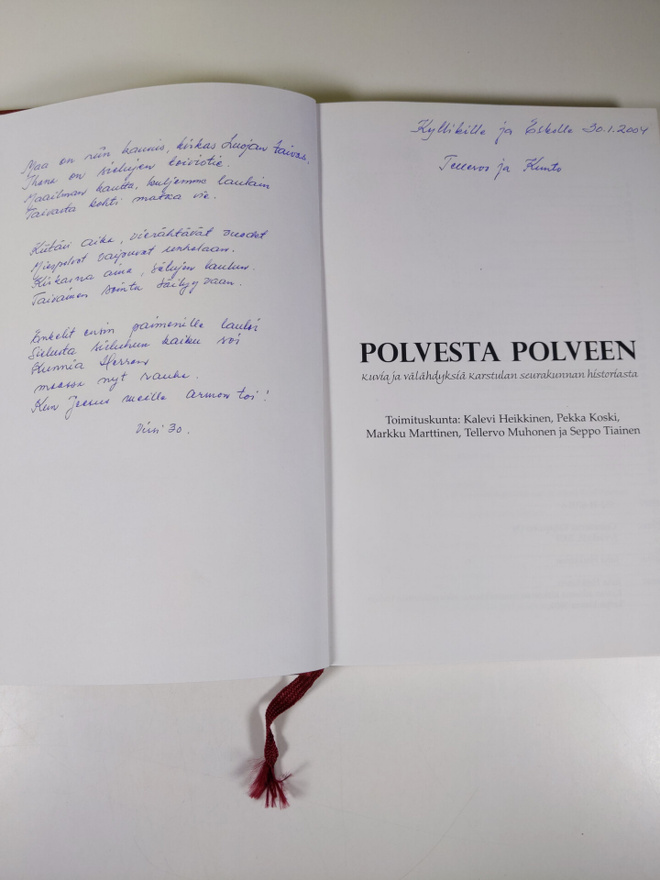 Maa on niin kaunis, kirkas Luojan taivas.
Ihana on sielujen toiviotie.
Maailman kautta, kuljemme laulain
Taivasta kohti matka vie.
Kiitävi aika, vierähtävät vuodet
Miespolvet vaipuvat unholaan.
Kirkasna aina, sielujen laulun
Taivainen sointu säilyy vaan.
Enkelit ensin paimenille lauloi
Sielusta sieluhun kaiku soi
Kunnia Herran
maassa nyt rauha.
Kun Jeesus meille armon toi!
Virsi 30.
Kyllikille ja Eskille 30.1.2004
Tellervo ja Kunto
POLVESTA POLVEEN
Kuvia ja välähdyksiä Karstulan seurakunnan historiasta
Toimituskunta: Kalevi Heikkinen, Pekka Koski,
Markku Marttinen, Tellervo Muhonen ja Seppo Tiainen